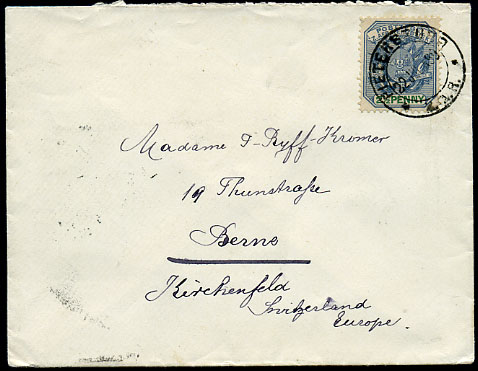 POS
PIETERSBURG
Z.A.R.
2½ PENNY
Madame F-Ryff-Kromer
19 Thunstraße
Berne
Kirchenfeld
Switzerland
Europe.